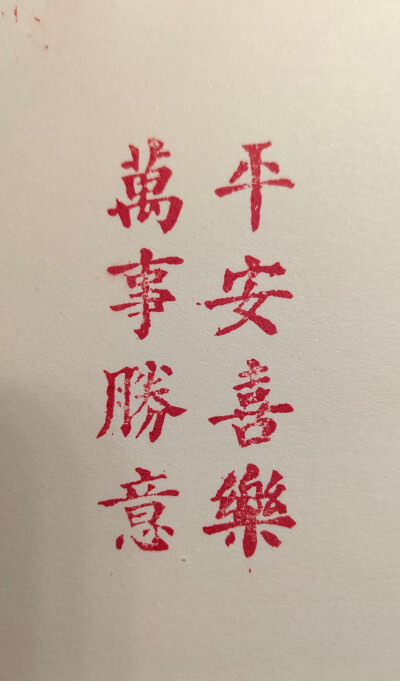 平安喜樂
萬事勝意